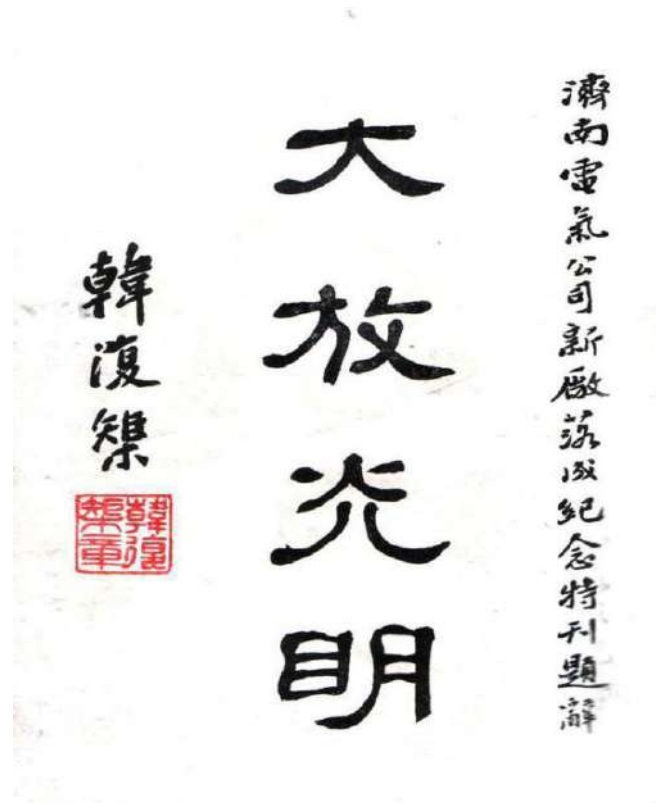 濟南電氣公司新廠落成紀念特刊題辭
大放光明
韓復榘
韓復榘章